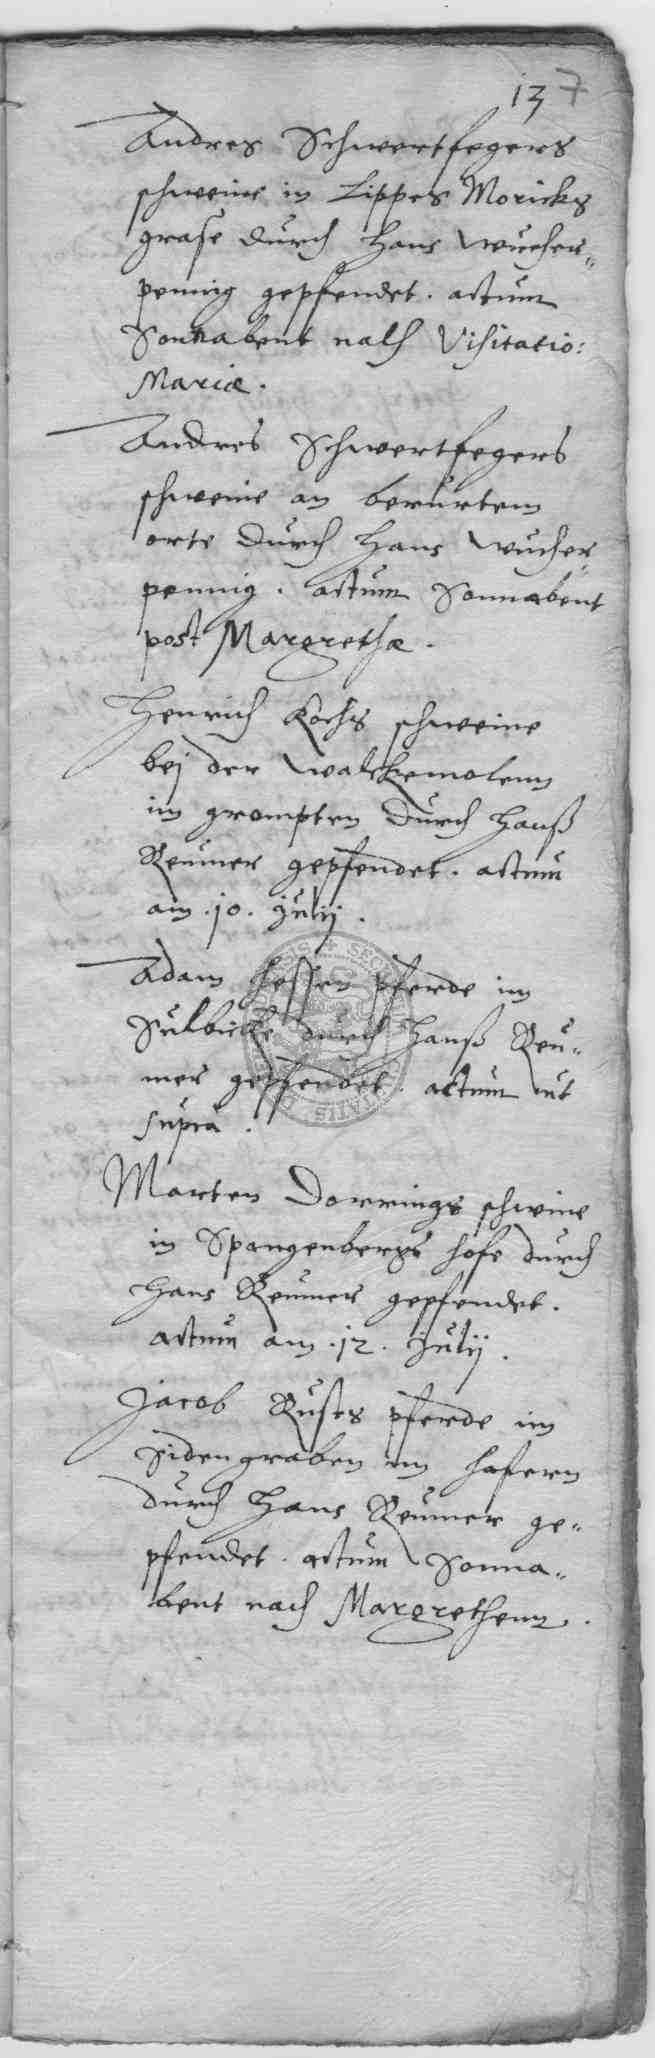 137
Andres Schwertfegers
schweine in Lippes Moricks
grase durch Hans Wucher„
pennig gepfendet. actum
Sonnabent nach Visitatio:
Mariæ.
Andres Schwertfegers
schweine an berurtem
orte durch Hans Wucher„
pennig. actum Sonnabent
post Margrethæ.
Henrich Kochs schweine
bej der Walckemolenn
im grompten durch Hanß
Reumer gepfendet. actum
am .10. Julij.
Adam Hessen pferde im
Sulbicke durch Hanß Reu„
mer gepfendet. actum ut
supra.
Marten Dorrings schwine
in Spangenbergs hofe durch
Hans Reumer gepfendet.
actum am .12. Julij.
Jacob Rusts pferde im
Sidengraben im hafern
durch Hans Reumer ge„
pfendet. actum Sonna„
bent nach Margrethenn.